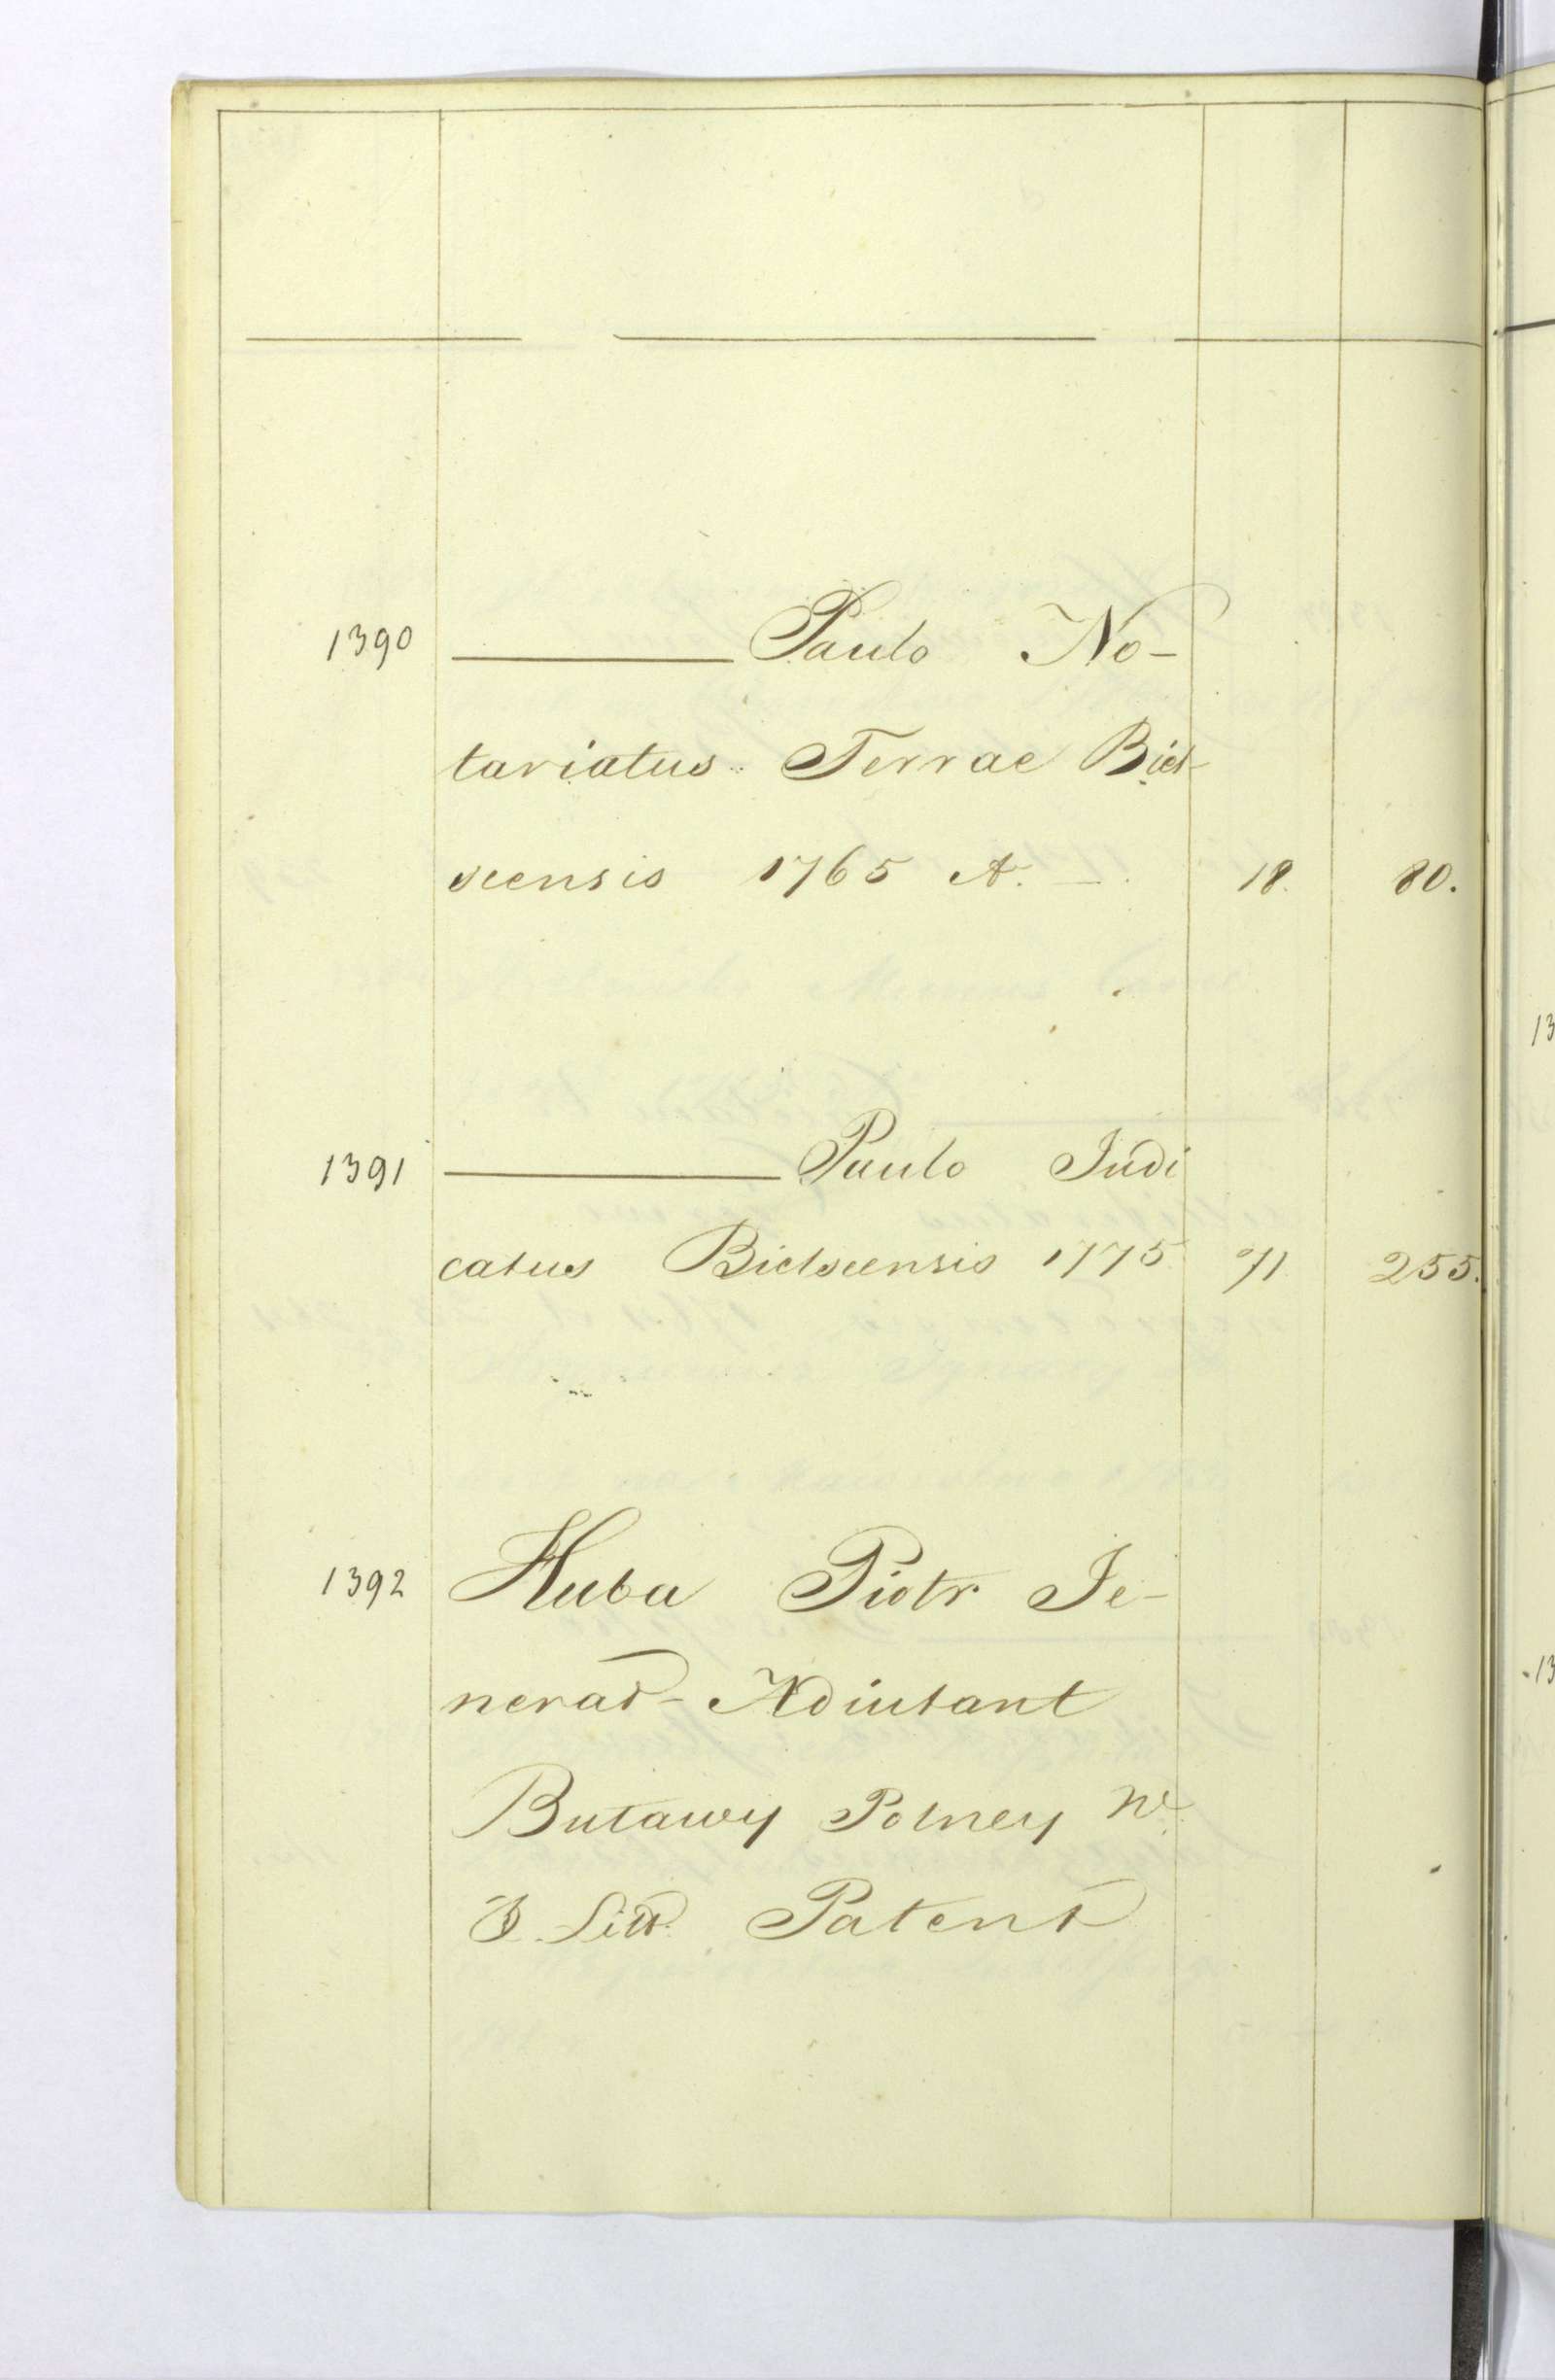 1390 ——— Paulo No-
tariatus Terrae Biel-
scensis 1765 A. — 18. 80.
1391 ——— Paulo Judi
catus Bielscensis 1775 71 255.
1392 Huba Piotr Je-
nerał-Adiutant
Buławy Polney W.
X. Litt. Patent
13
13